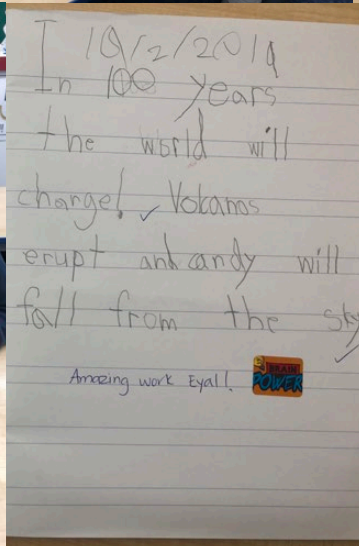 19/2/2019
In 100 years
the world will
change! Volcanos
erupt and candy will
fall from the sky
Amazing work Eyal!!
BRAIN
POWER